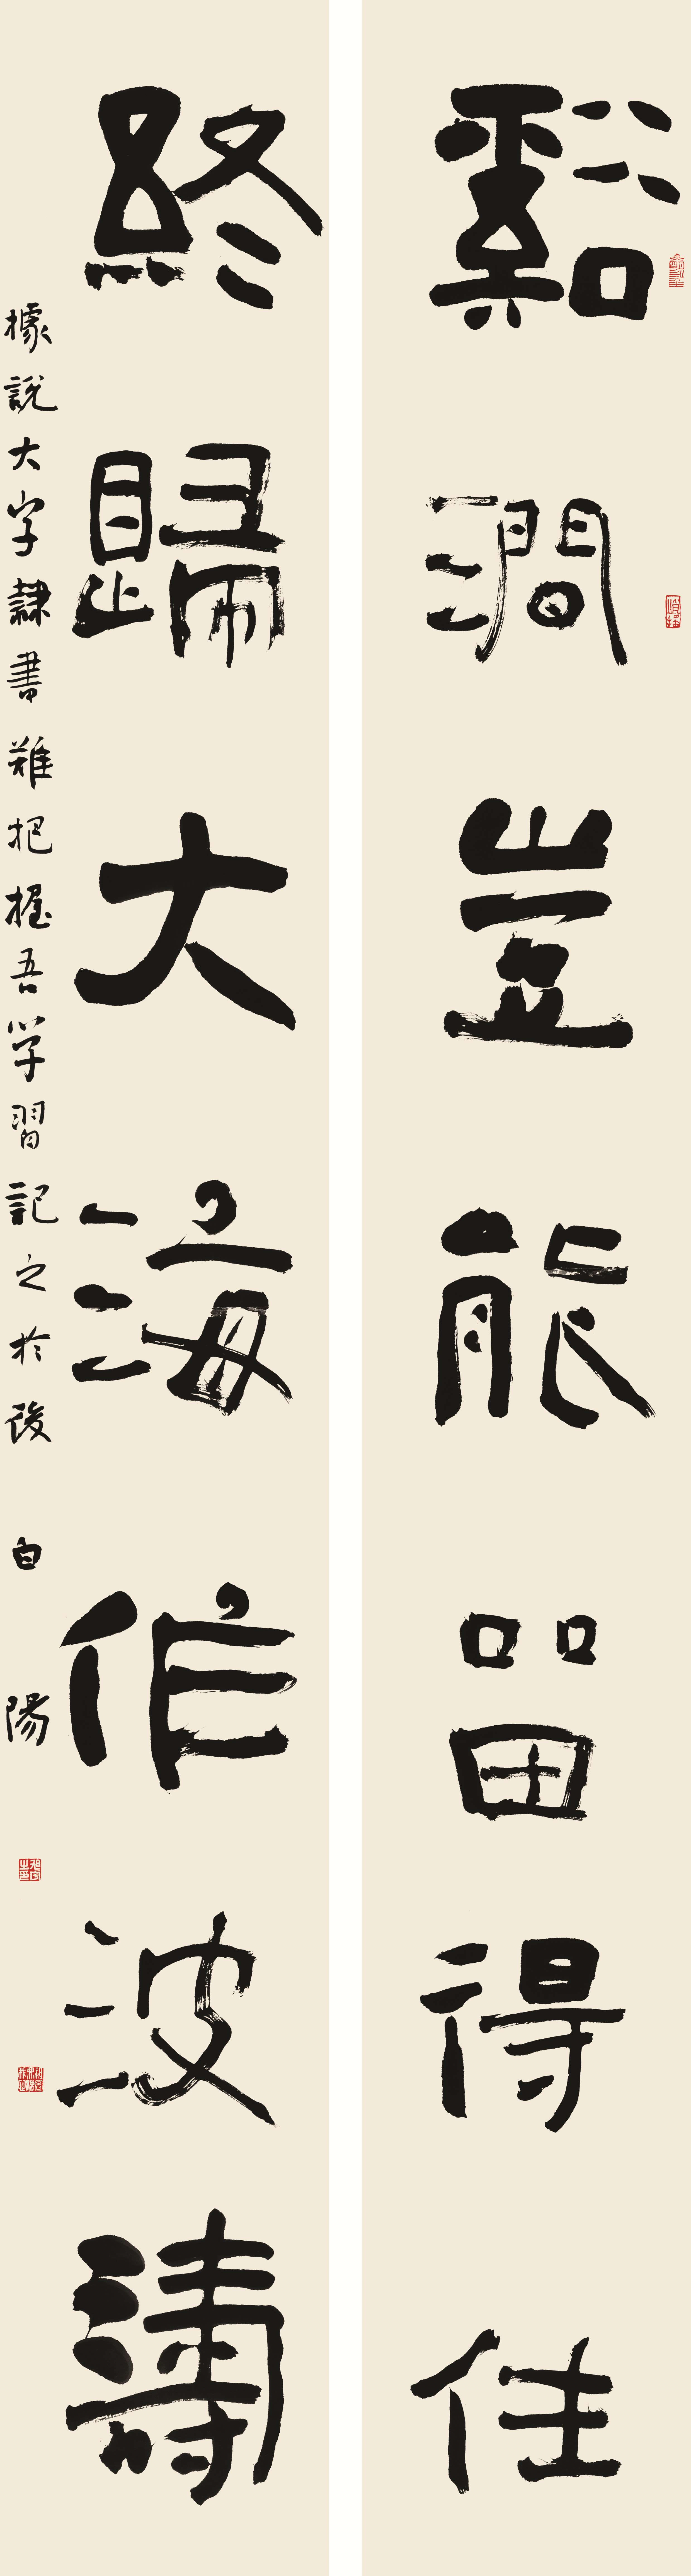 谿澗豈能畱得住
終歸大海作波濤
據說大字隸書難把握吾學習記之於後 白陽